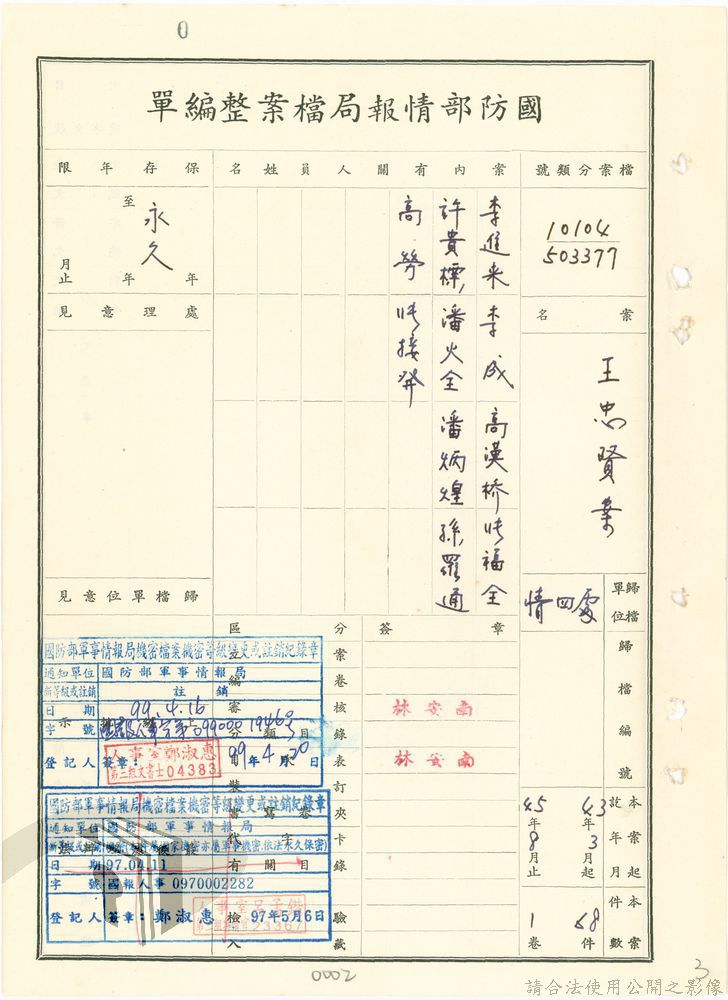 0
國防部情報局檔案整編單
檔案分類號
10104
503377
案名
王忠賢案
歸檔單位
情四處
歸檔編號
本案起年月
43年3月起
45年8月止
本案件數
68件
1卷
案內有關人員姓名
李進來 李成 高漢橋 張福全
許貴標, 潘火全 潘炳煌 孫羅通
高勞 張接發
保存年限
永久
至 年 年 月止
處理意見
歸檔單位意見
簽章
林安南
林安南
國防部軍事情報局機密檔案機密等級變更或註銷紀錄章
通知單位 國防部軍事情報局
新等級或註銷 註銷
日期 99.4.16
字號 0990001946號
登記人 簽章: 99年4月20日
人事室鄭淑惠
第二組文書士04383
國防部軍事情報局機密檔案機密等級變更或註銷紀錄章
通知單位 國防部軍事情報局
日期 97.04.11
字號 國報人事 0970002282
登記人 簽章: 鄭淑惠 97年5月6日
23367
0002
3
請合法使用公開之影像